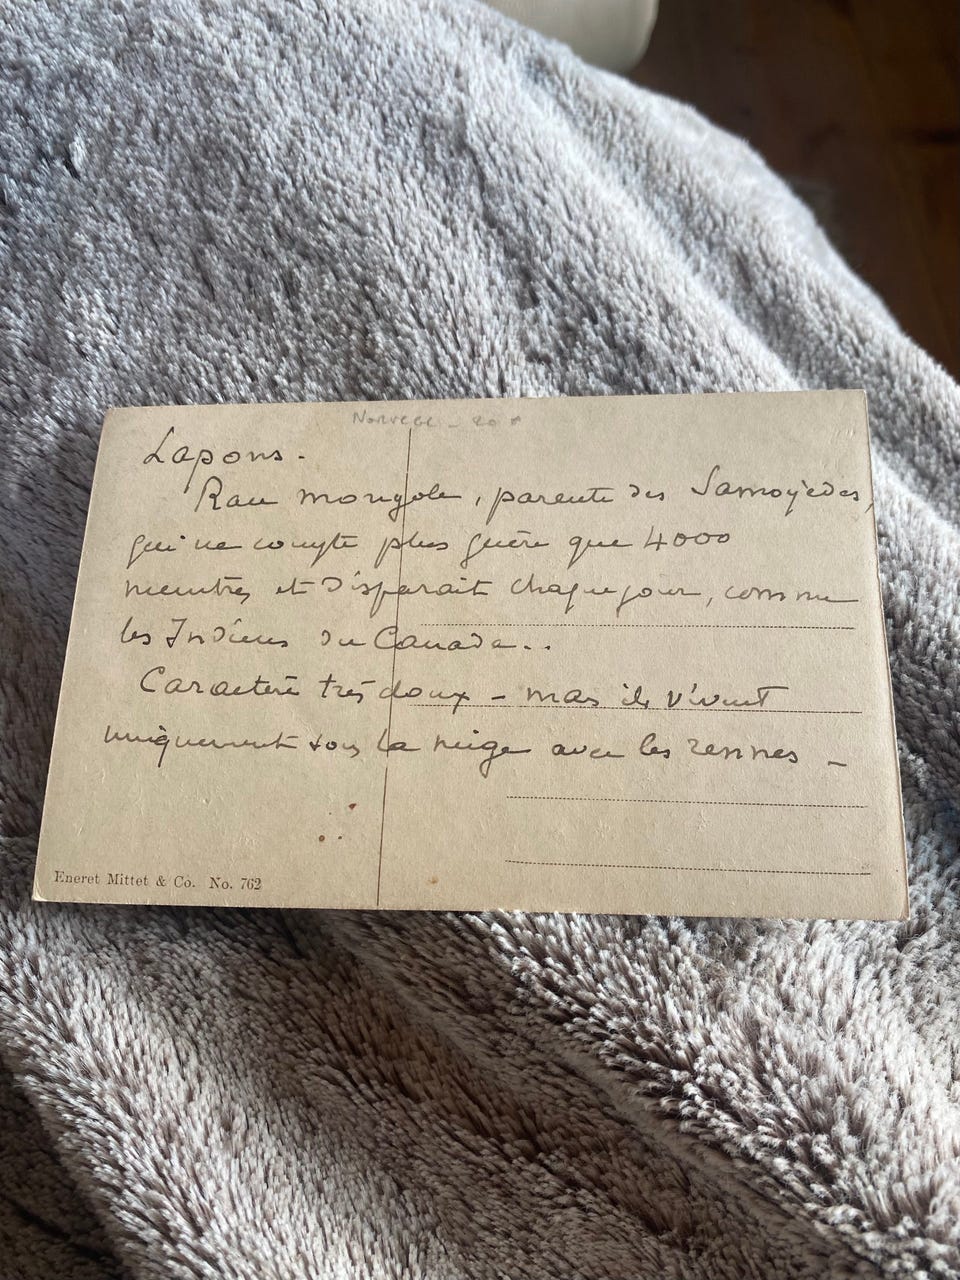 Norvege - 20 F
Lapons.
Race mongole, parente des Samoyèdes,
qui ne compte plus guère que 4000
membres et disparait chaque jour, comme
les Indiens du Canada..
Caractère très doux - mais ils vivent
uniquement sous la neige avec les rennes -
Eneret Mittet & Co. No. 762